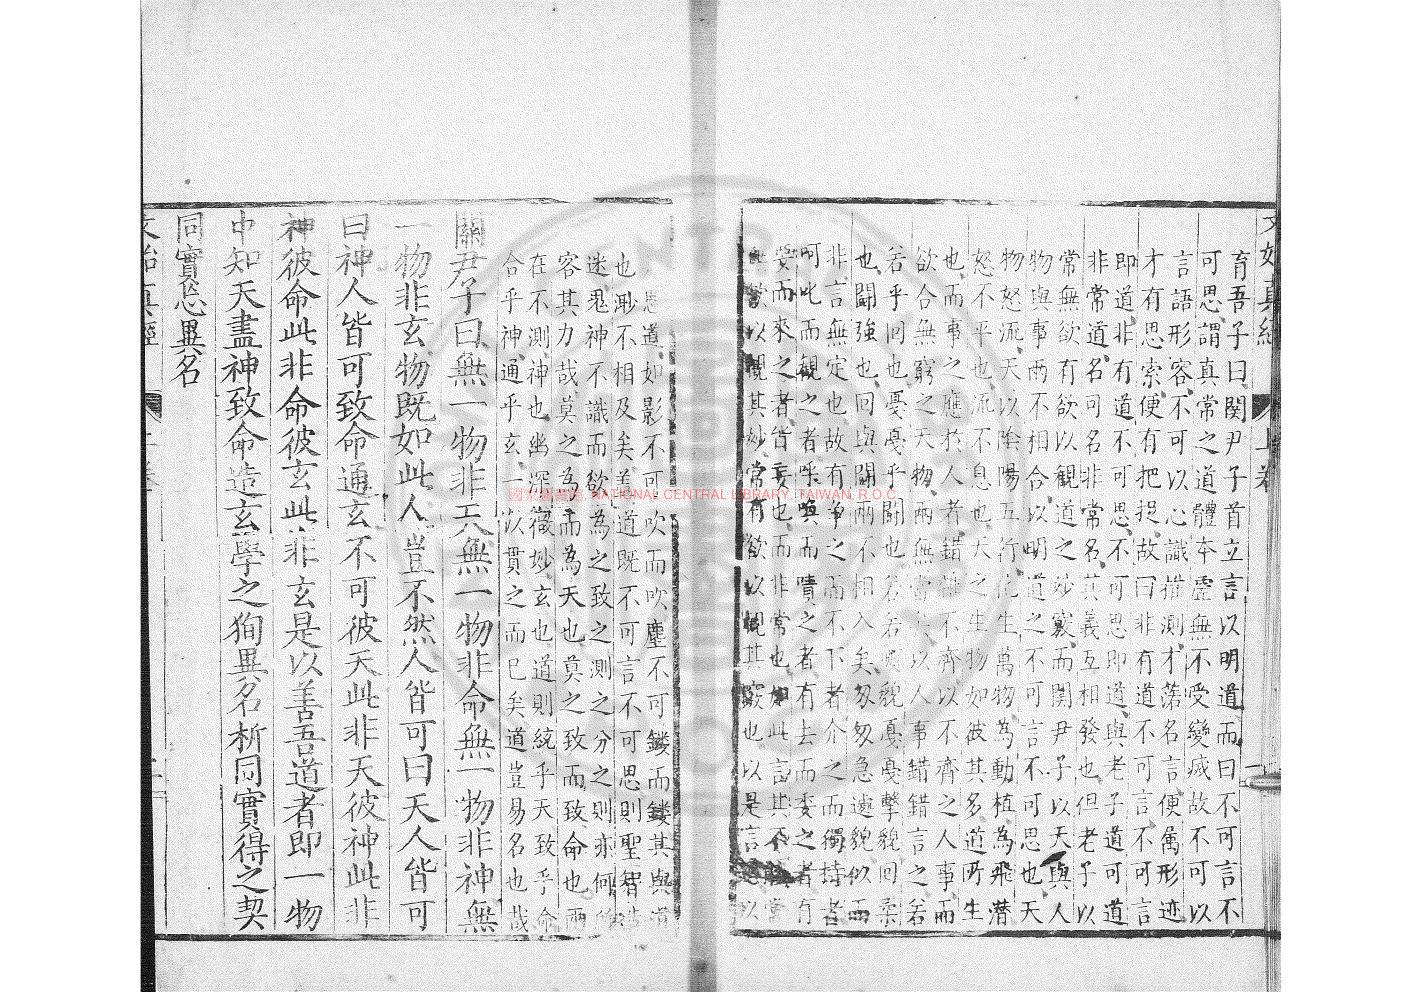 文始真經 上卷
育吾子曰関尹子首立言以明道而曰不可言不
可思謂真常之道體本虛無不受變滅故不可以
言語形容不可以心識描測才落名言便属形迹
才有思索便有把捉故曰非有道不可言不可言
即道非有道不可思不可思即道與老子道可道
非常道名可名非常名其義互相發也但老子以
常無欲有欲以観道之妙竅而関尹子以天與人
物與事两不相合以明道之不可言不可思也天
物怒流天以陰陽五行化生萬物為動植為飛潜
怒不平也流不息也天之生物如彼其多道所生
也而事之應於人者錯雜不齊以不齊之人事而
欲合無窮之天物两無當以人事錯錯言之若
若乎回也憂憂乎鬪也若若貌憂憂擊貌回柔
也鬪強也回與鬪两不相入矣匆匆急遽貌似而
非言無定也故有争之而不下者介之而獨持者
呵叱而観之者呼喚而嘖之者有去而委之者有
要而来之者皆妄也而非常也如此言其不
無欲以観其妙常有欲以観其竅也以是言思以
思道如影不可吹而吹塵不可鏤而鏤其與道
也渺不相及矣義道既不可言不可思則聖智
迷鬼神不識而欲為之致之測之分之則亦何
容其力哉莫之為而為天也莫之致而致命也两
在不測神也幽深微妙玄也道則統乎天致乎命
合乎神通乎玄一以貫之而已矣道豈易名也哉
關尹子曰無一物非天無一物非命無一物非神無
一物非玄物既如此人豈不然人皆可曰天人皆可
曰神人皆可致命通玄不可彼天此非天彼神此非
神彼命此非命彼玄此非玄是以善吾道者即一物
中知天盡神致命造玄學之狥異名析同實得之契
同實忘異名
文始真經